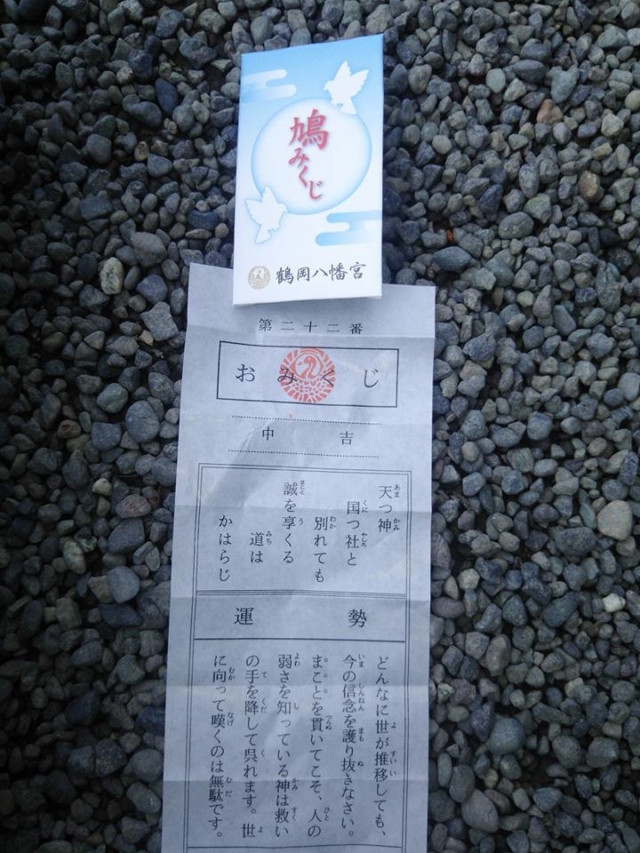 鳩みくじ
鶴岡八幡宮
第二十二番
おみくじ
中吉
天つ神
国つ社と
別れても
誠を享くる
道は
かはらじ
運勢
どんなに世が推移しても、
今の信念を護り抜きなさい。
まことを貫いてこそ、人の
弱さを知っている神は救い
の手を降して呉れます。世
に向って嘆くのは無駄です。